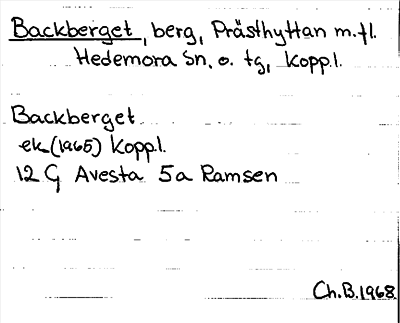 Backberget, berg, Prästhyttan m.fl.
Hedemora sn. o. tg, Koppl.
Backberget
ek (1965) Koppl.
12 G Avesta 5a Ramsen
Ch.B.1968.